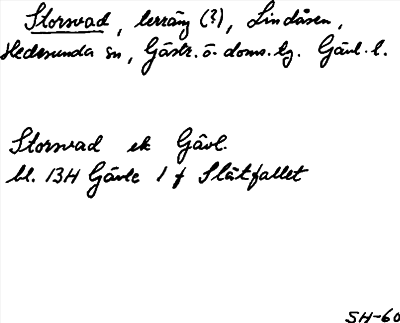 Storsvad, terräng (?), Lindåsen,
Hedesunda sn, Gästr. ö. doms. tg. Gävl. l.
Storsvad ek Gävl.
bl. 13H Gävle 1 f Slätfallet
SH-60